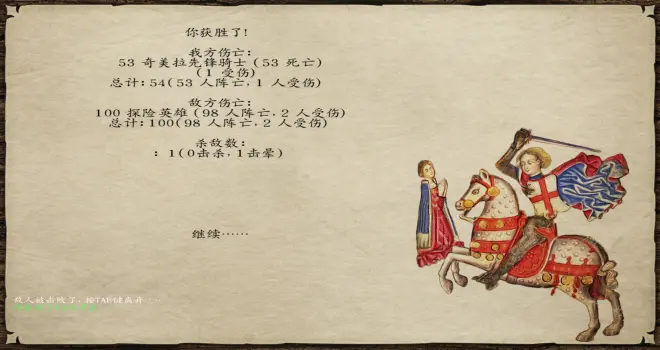 你获胜了!
我方伤亡:
53 奇美拉先锋骑士 (53 死亡)
(1 受伤)
总计: 54(53 人阵亡, 1 人受伤)
敌方伤亡:
100 探险英雄 (98 人阵亡, 2 人受伤)
总计: 100(98 人阵亡, 2 人受伤)
杀敌数:
: 1(0击杀, 1击晕)
继续……
敌人被击败了, 按TAB键离开